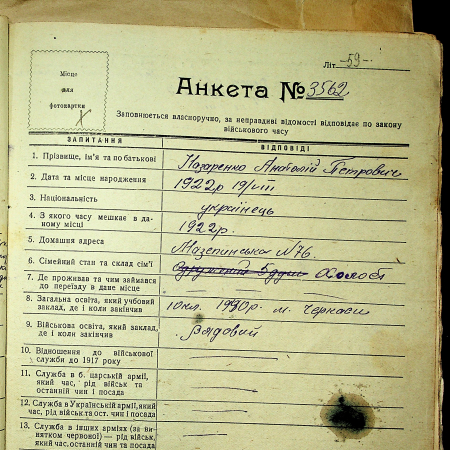 Літ. -59-
Місце
для
фотокартки
X
Анкета № 3562
Заповнюється власноручно, за неправдиві відомості відповідає по закону
військового часу
ЗАПИТАННЯ ВІДПОВІДІ
1. Прізвище, ім'я та по батькові Назаренко Анатолій Петрович
2. Дата та місце народження 1922р 19/VIII
3. Національність українець
4. З якого часу мешкає в да-
ному місці 1922р.
5. Домашня адреса Мазепинська №76.
6. Сімейний стан та склад сім'ї Холост
7. Де проживав та чим займався
до переїзду в дане місце
8. Загальна освіта, який учбовий
заклад, де і коли закінчив 10кл. 1940р. м. Черкаси
9. Військова освіта, який заклад,
де і коли закінчив Рядовий
10. Відношення до військової
служби до 1917 року
11. Служба в б. царській армії,
який час, рід військ та
останній чин і посада
12. Служба в Українській армії, який
час, рід військ та ост. чин і посада
13. Служба в інших арміях (за ви-
нятком червоної) — рід військ,
який час, останній чин та посада